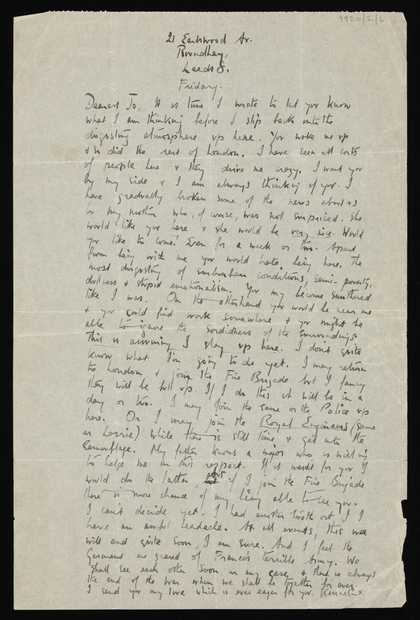 9920/2/2
21 Earlswood Av.
Roundhay,
Leeds 8.
Friday.
Dearest Jo. It is time I wrote to let you know
what I am thinking before I slip back into the
disgusting atmosphere up here. You woke me up
& so did the rest of London. I have seen all sorts
of people here & they drive me crazy. I want you
by my side & I am always thinking of you. I
have gradually broken some of the news about us
to my mother who, of course, was not surprised. She
would like you here & she would be very nice. Would
you like to come? Even for a week or two. Apart
from being with me you would hate being here, the
most disgusting of suburban conditions, semi-poverty,
darkness & stupid emotionalism. You may become smothered
like I was. On the otherhand you would be near me
& you could find work somewhere & you might be
able to ignore the sordidness of the surroundings
This is assuming I stay up here. I don't quite
know what I'm going to do yet. I may return
to London & join the Fire Brigade but I fancy
they will be full up. If I do this it will be in a
day or two. I may join the same or the Police up
here. Or I may join the Royal Engineers (same
as Lorrie) while there is still time, & get into the
Camouflage. My father knows a major who is willing
to help me in this respect. It is hard for you if
would do the latter, if I join the Fire Brigade
there is more chance of my being able to see you.
I can't decide yet. I had another tooth out & I
have an awful headache. At all events, this war
will end quite soon, I am sure. And I feel the
Germans are scared of France's terrible Army. We
shall see each other soon in any case & there is always
the end of the war when we shall be together for ever.
I send you my love which is ever eager for you. Kenneth